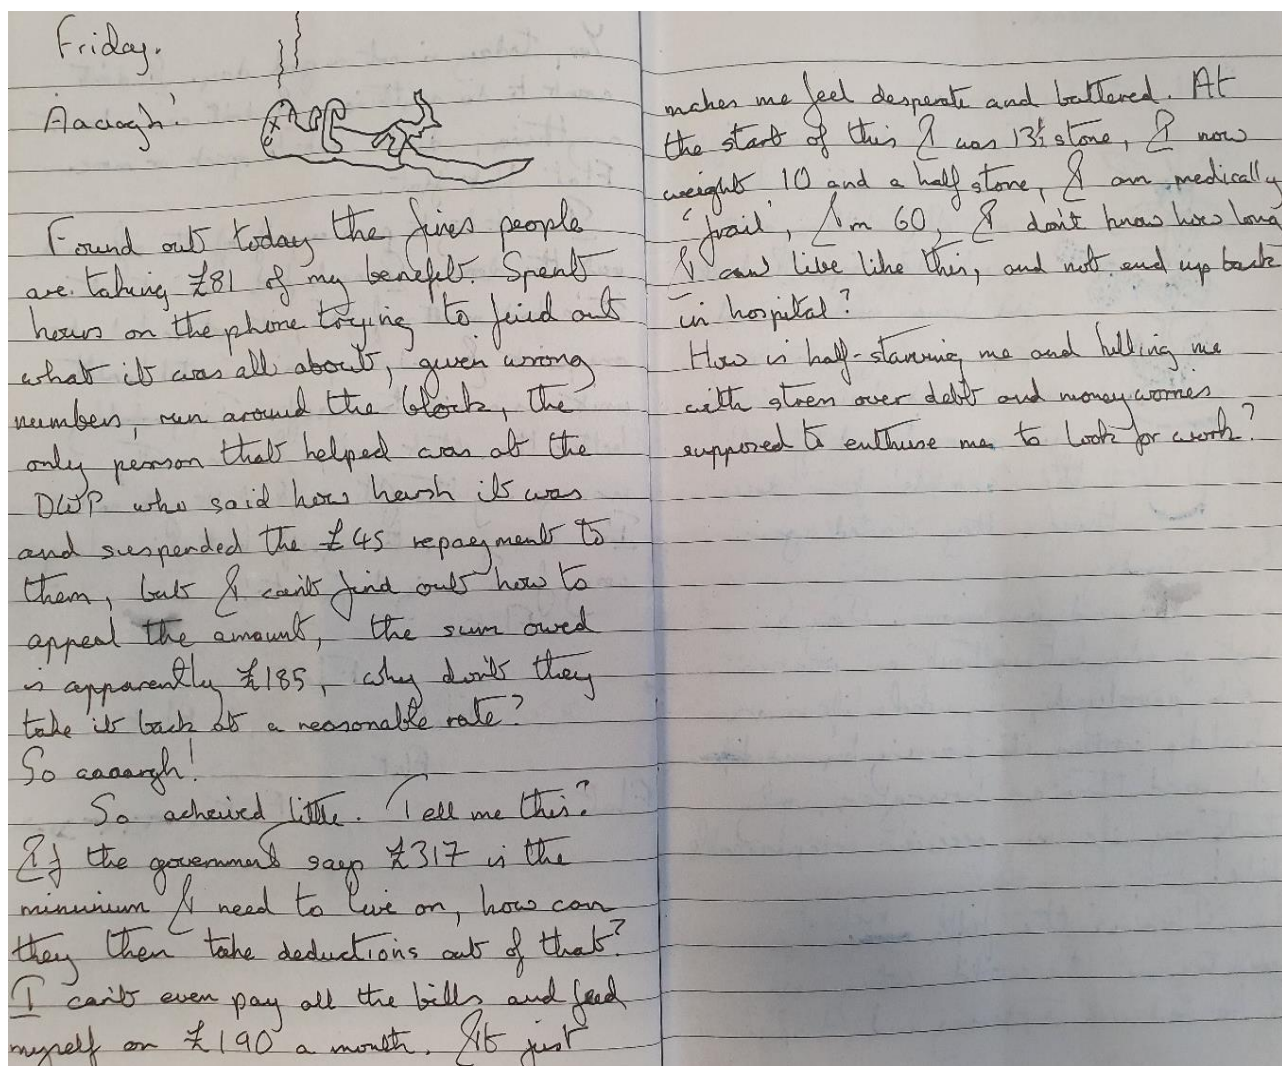 Friday.
Aaaagh!
Found out today the fines people
are taking £81 of my benefit. Spent
hours on the phone trying to find out
what it was all about, given wrong
numbers, run around the block, the
only person that helped was at the
DWP who said how harsh it was
and suspended the £45 repayment to
them, but I can't find out how to
appeal the amount, the sum owed
is apparently £185, why don't they
take it back at a reasonable rate?
So aaaargh!
So acheived little. Tell me this?
If the government says £317 is the
minimium I need to live on, how can
they then take deductions out of that?
I can't even pay all the bills and feed
myself on £190 a month. It just
makes me feel desperate and battered. At
the start of this I was 13½ stone, I now
weight 10 and a half stone, I am medically
'frail', I'm 60, I don't know how long
I can live like this, and not end up back
in hospital?
How is half-starving me and killing me
with stress over debt and money worries
supposed to enthuse me to look for work?